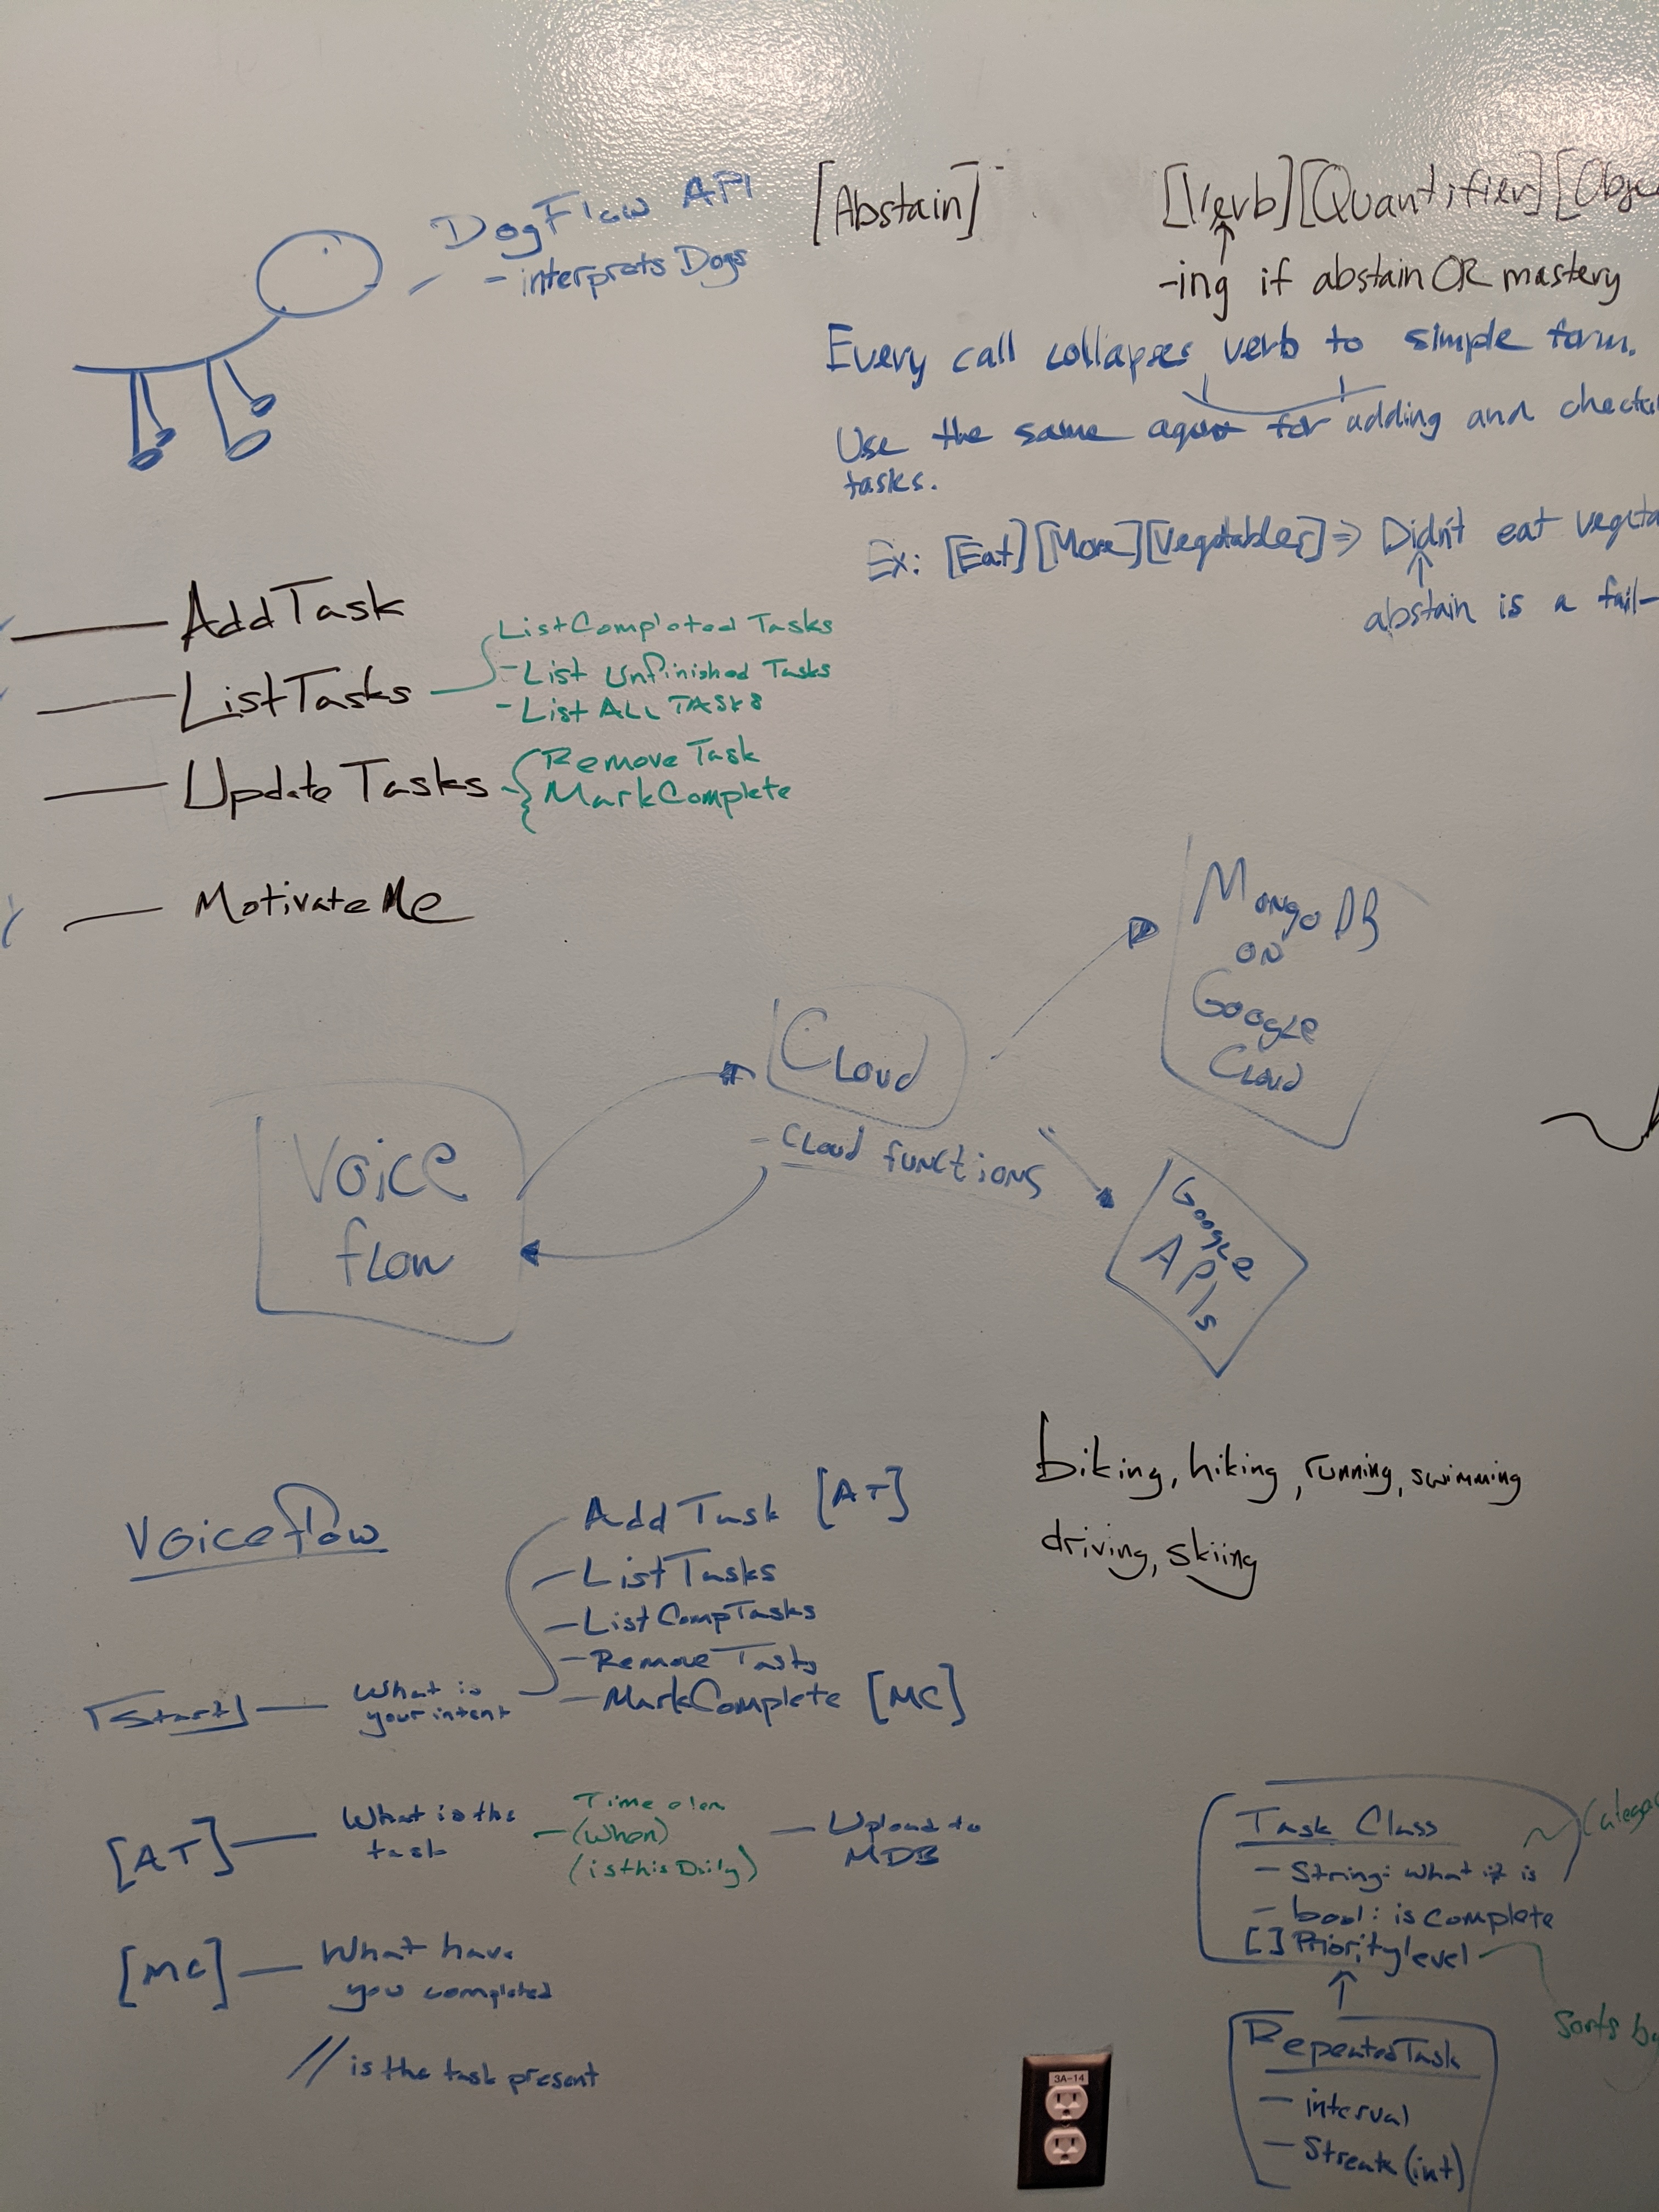 DogFlow API
- interprets Dogs
[Abstain]
[Verb][Quantifier][Obje
-ing if abstain OR mastery
Every call collapses verb to simple form.
Use the same for adding and
tasks.
Ex: [Eat][More][Vegetables] => Didn't eat vegeta
abstain is a fail-
AddTask
ListTasks
ListCompleted Tasks
- List Unfinished Tasks
- List ALL TASKS
UpdateTasks
Remove Task
MarkComplete
MotivateMe
MongoDB
on
Google
Cloud
Cloud
- Cloud functions
Voice
flow
Google
APIs
biking, hiking, running, swimming
driving, skiing
Voiceflow
AddTask [AT]
- ListTasks
- ListCompTasks
- RemoveTasks
- MarkComplete [MC]
[Start] — What is
your intent
[AT] — What is the
task
Time
(when)
(is this Daily)
— Upload to
MDB
[MC] — What have
you completed
// is the task present
Task Class
- String: what it is
- bool: is complete
[] Priority level
~ Catego
Sorts by
RepeatedTask
- interval
- Streak (int)
3A-14